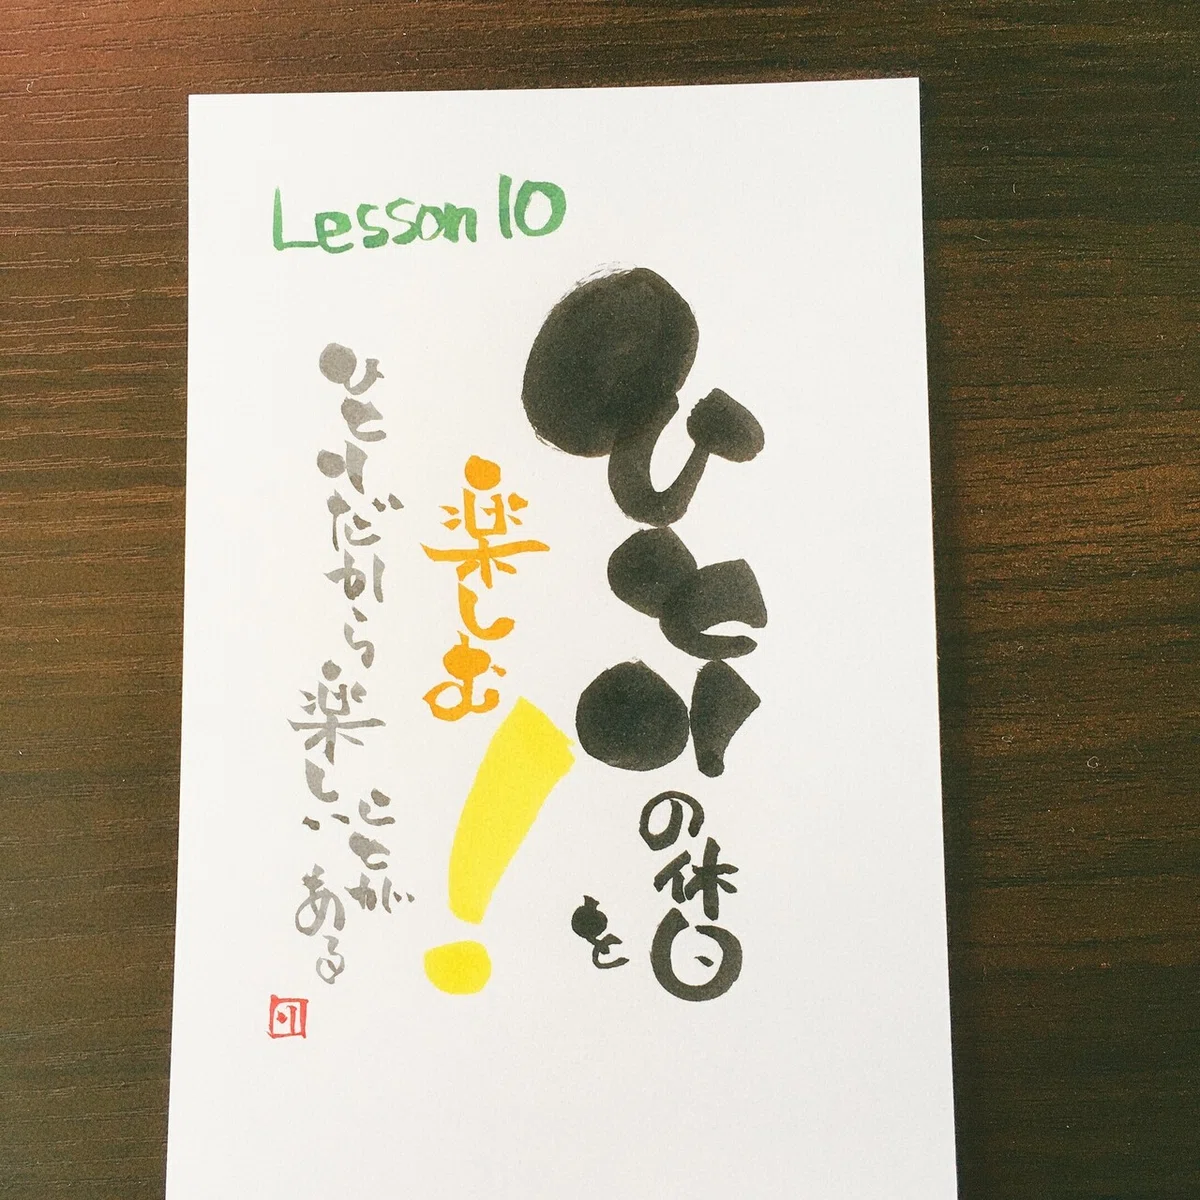 Lesson 10
ひとりの休日を
楽しむ！
ひとりだから楽しい
ことが
ある